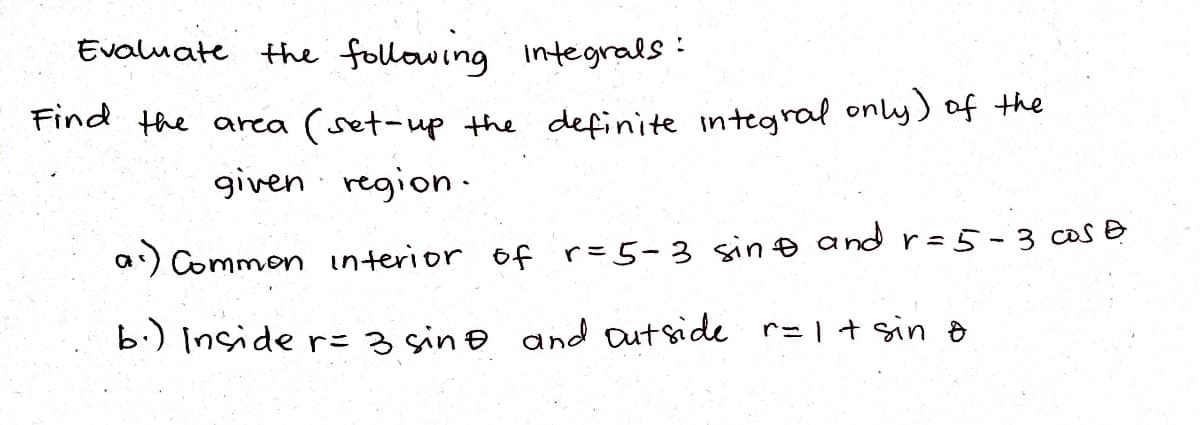 Evaluate the following integrals:
Find the area (set-up the definite integral only) of the
given region.
a.) Common interior of r=5-3 sin θ and r=5-3 cos θ
b.) Inside r= 3 sin θ and outside r=1+ sin θ